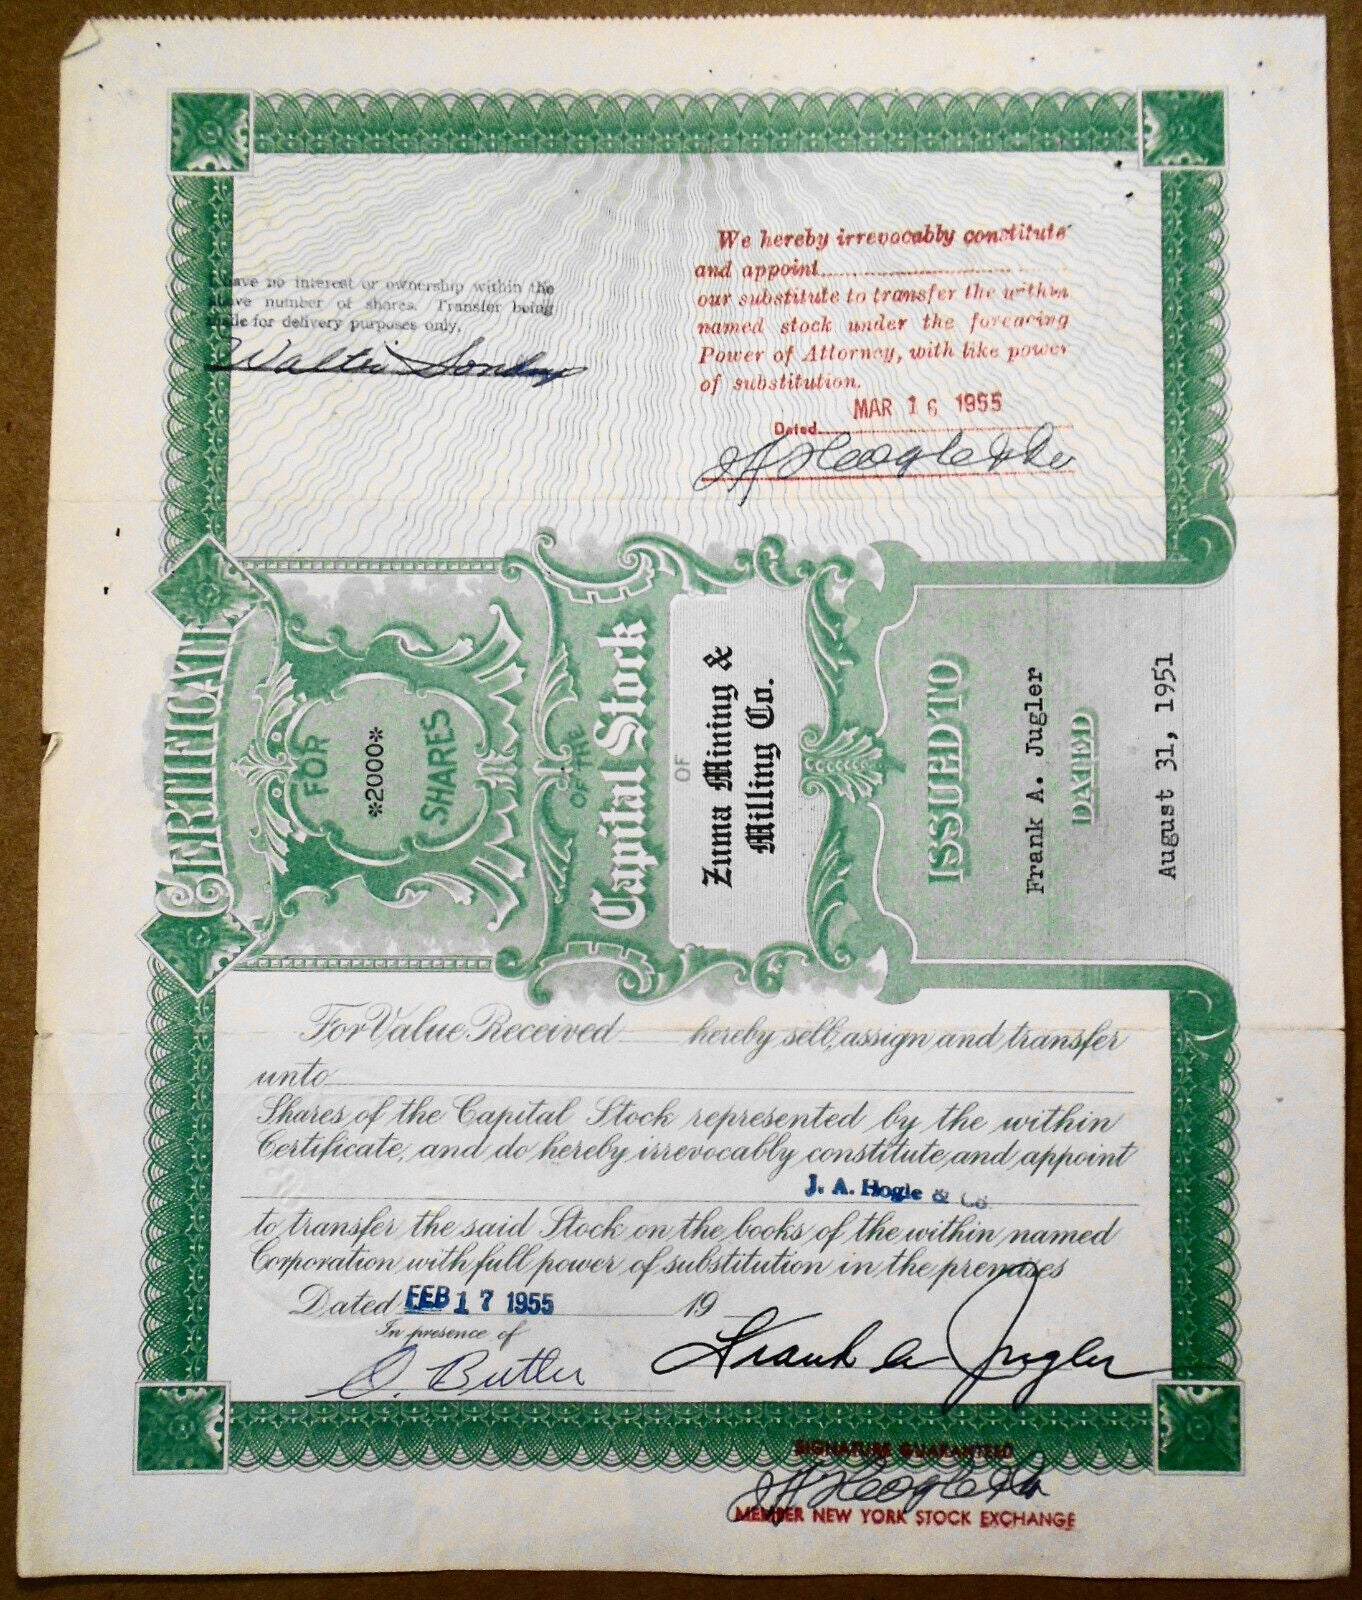 We hereby irrevocably constitute
and appoint
our substitute to transfer the within
named stock under the foregoing
Power of Attorney, with like power
of substitution.
MAR 16 1955
Dated
J A Hogle & Co
have no interest or ownership within the
above number of shares. Transfer being
made for delivery purposes only,
Walter
CERTIFICATE
FOR
*2000*
SHARES
OF THE
Capital Stock
OF
Zuma Mining &
Milling Co.
ISSUED TO
Frank A. Jugler
DATED
August 31, 1951
For Value Received hereby sell, assign and transfer
unto
Shares of the Capital Stock represented by the within
Certificate, and do hereby irrevocably constitute and appoint
J. A. Hogle & Co
to transfer the said Stock on the books of the within named
Corporation with full power of substitution in the premises
Dated FEB 17 1955 19
In presence of
O. Butler
Frank A Jugler
SIGNATURE GUARANTEED
J A Hogle & Co
MEMBER NEW YORK STOCK EXCHANGE